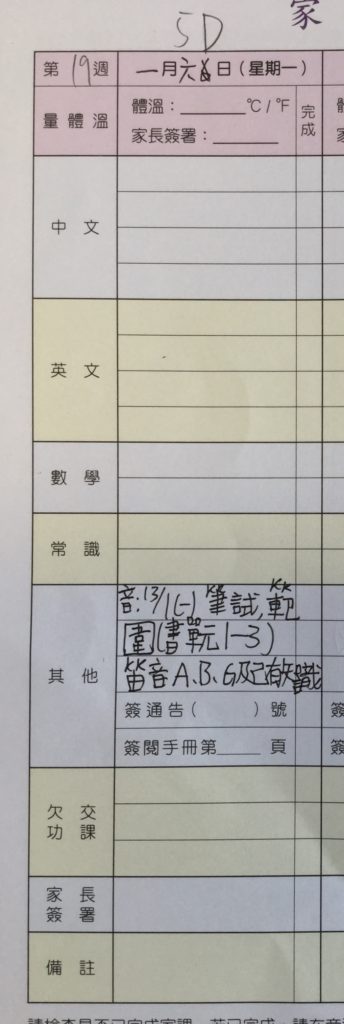 家
5D
第19週 一月六日(星期一)
量體溫 體溫：______℃/℉ 完成
家長簽署：______
中文
英文
數學
常識
音:13/1(一)筆試,範
圍(書單元1-3)
其他 笛音A、B、G及
簽通告( )號
簽閱手冊第____頁
欠交功課
家長簽署
備註